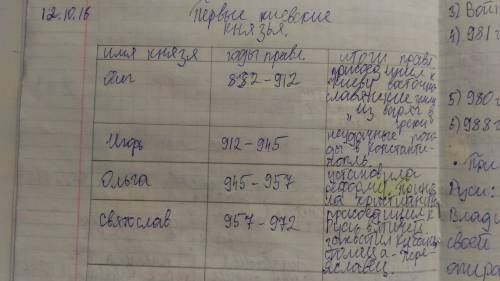 12.10.16
Первые киевские
князья.
имя князя годы правл. итоги правл
Олег 882-912 присоединил к
Киеву восточно
славянские
"из варяг в
греки"
Игорь 912-945 неудачные похо-
ды в Константи-
нополь
Ольга 945-957 установила
реформу, приня-
ла христианство
Святослав 957-972 присоединил к
Русь вятичей.
захватил Кубань
столица - Пере-
яславец.
3) Войн
4) 981г
5) 980г
6) 988г
• При
Руси:
Влади
своей
опира